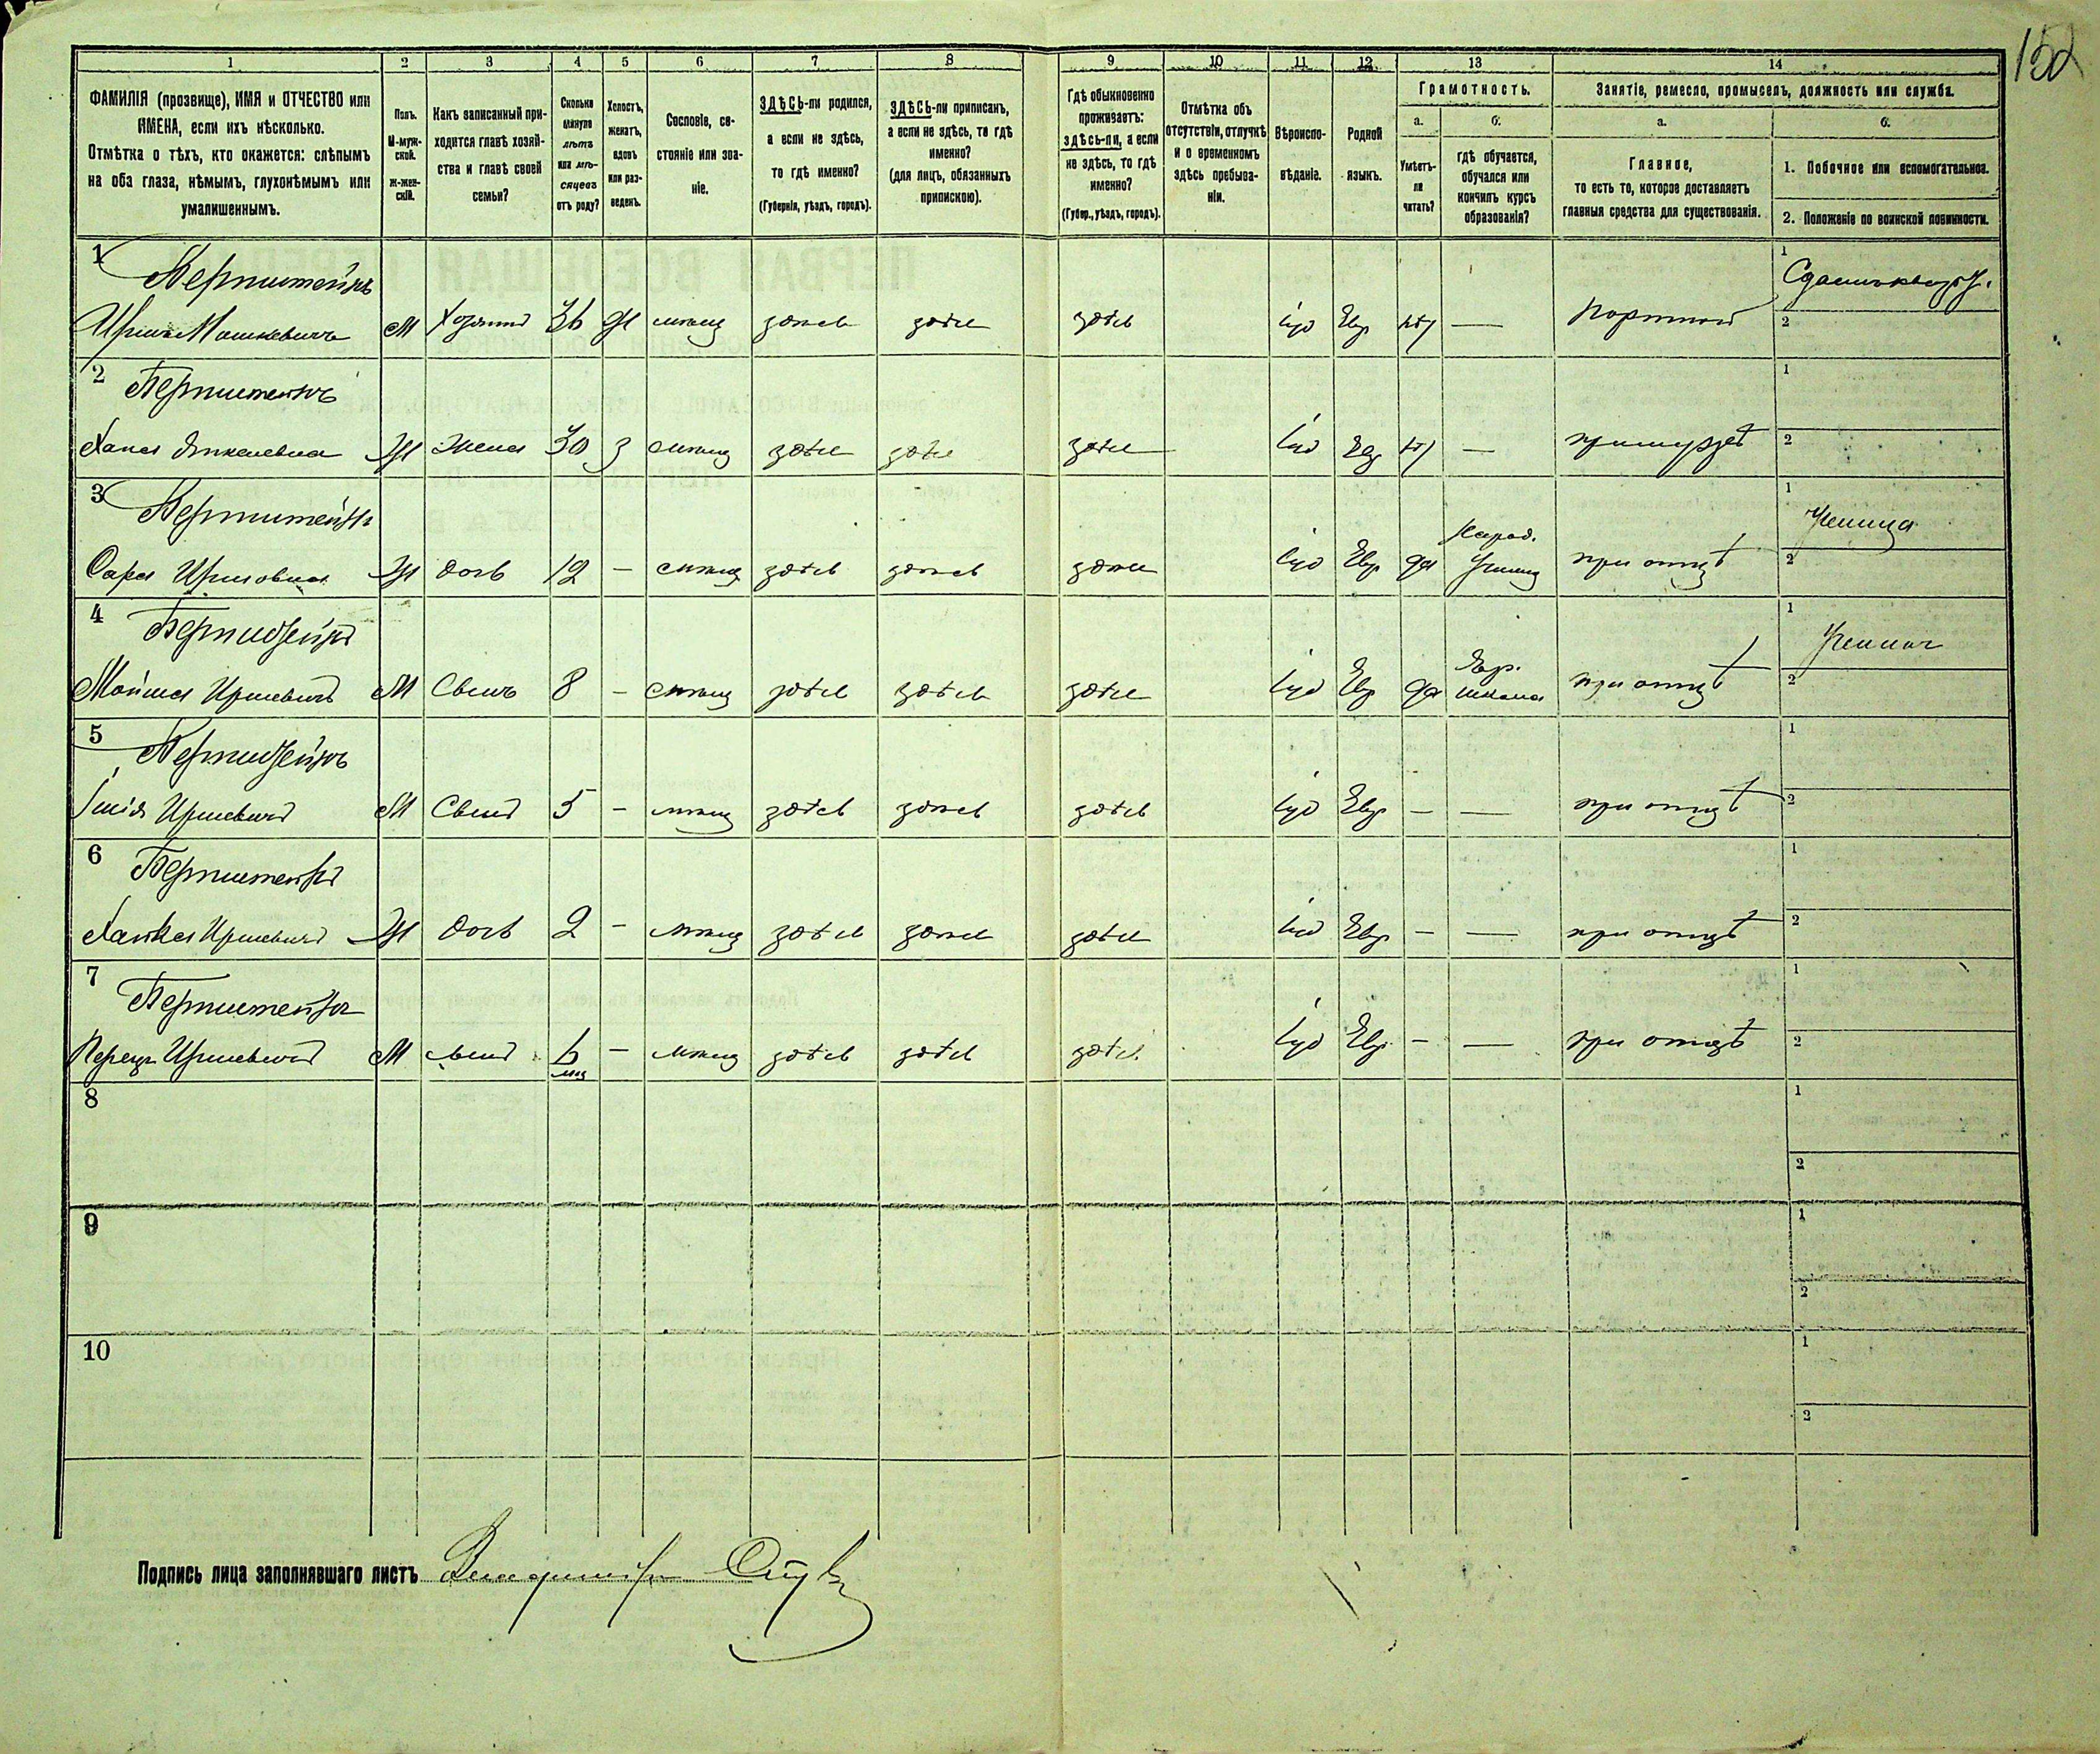 152
1 2 3 4 5 6 7 8 9 10 11 12 13 14
ФАМИЛІЯ (прозвище), ИМЯ и ОТЧЕСТВО или
ИМЕНА, если ихъ нѣсколько.
Отмѣтка о тѣхъ, кто окажется: слѣпымъ
на оба глаза, нѣмымъ, глухонѣмымъ или
умалишеннымъ.
Полъ.
М-муж-
ской.
Ж-жен-
скій.
Какъ записанный при-
ходится главѣ хозяй-
ства и главѣ своей
семьи?
Сколько
минуло
лѣтъ
или мѣ-
сяцевъ
отъ роду?
Холостъ,
женатъ,
вдовъ
или раз-
веденъ.
Сословіе, со-
стояніе или зва-
ніе.
ЗДѢСЬ-ли родился,
а если не здѣсь,
то гдѣ именно?
(Губернія, уѣздъ, городъ).
ЗДѢСЬ-ли приписанъ,
а если не здѣсь, то гдѣ
именно?
(для лицъ, обязанныхъ
припискою).
Гдѣ обыкновенно
проживаетъ:
здѣсь-ли, а если
не здѣсь, то гдѣ
именно?
(Губер., уѣздъ, городъ).
Отмѣтка объ
отсутствіи, отлучкѣ
и о временномъ
здѣсь пребыва-
ніи.
Вѣроиспо-
вѣданіе.
Родной
языкъ.
Грамотность.
а.
Умѣетъ-
ли
читать?
б.
гдѣ обучается,
обучался или
кончилъ курсъ
образованія?
Занятіе, ремесло, промыселъ, должность или служба.
а.
Главное,
то есть то, которое доставляетъ
главныя средства для существованія.
б.
1. Побочное или вспомогательное.
2. Положеніе по воинской повинности.
1 Бернштейнъ 1
Иршъ Мошкевичъ М Хозяинъ 36 Ж мѣщ здѣсь здѣсь здѣсь іуд Евр — портной 2
2 Бернштейнъ 1
Хана Янкелевна Ж Жена 30 З мѣщ здѣсь здѣсь здѣсь іуд Евр — при мужѣ 2
3 Бернштейнъ Народ. 1 Ученица
Сара Иршовна Ж дочь 12 — мѣщ здѣсь здѣсь здѣсь іуд Евр да Училищ при отцѣ 2
4 Бернштейнъ Евр. 1 Ученикъ
Мойша Иршевичъ М Сынъ 8 — мѣщ здѣсь здѣсь здѣсь іуд Евр да школа при отцѣ 2
5 Бернштейнъ 1
Иршевичъ М Сынъ 5 — мѣщ здѣсь здѣсь здѣсь іуд Евр — — при отцѣ 2
6 Бернштейнъ 1
Иршевичъ Ж дочь 2 — мѣщ здѣсь здѣсь здѣсь іуд Евр — — при отцѣ 2
7 Бернштейнъ 1
Перецъ Иршевичъ М сынъ 6 — мѣщ здѣсь здѣсь здѣсь іуд Евр — — при отцѣ 2
мѣс
8 1
2
9 1
2
10 1
2
Подпись лица заполнявшаго листъ